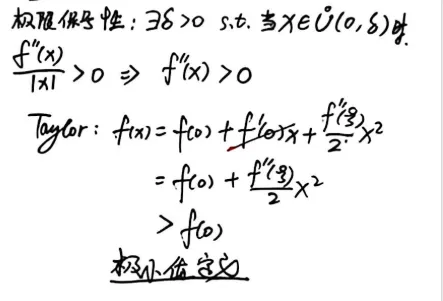 极限保号性：∃δ>0 s.t. 当x∈Ů(0,δ)时.
f''(x)/|x| > 0 ⇒ f''(x)>0
Taylor: f(x) = f(0) + f'(0)x + f''(ξ)/2 x²
= f(0) + f''(ξ)/2 x²
> f(0)
极小值定义